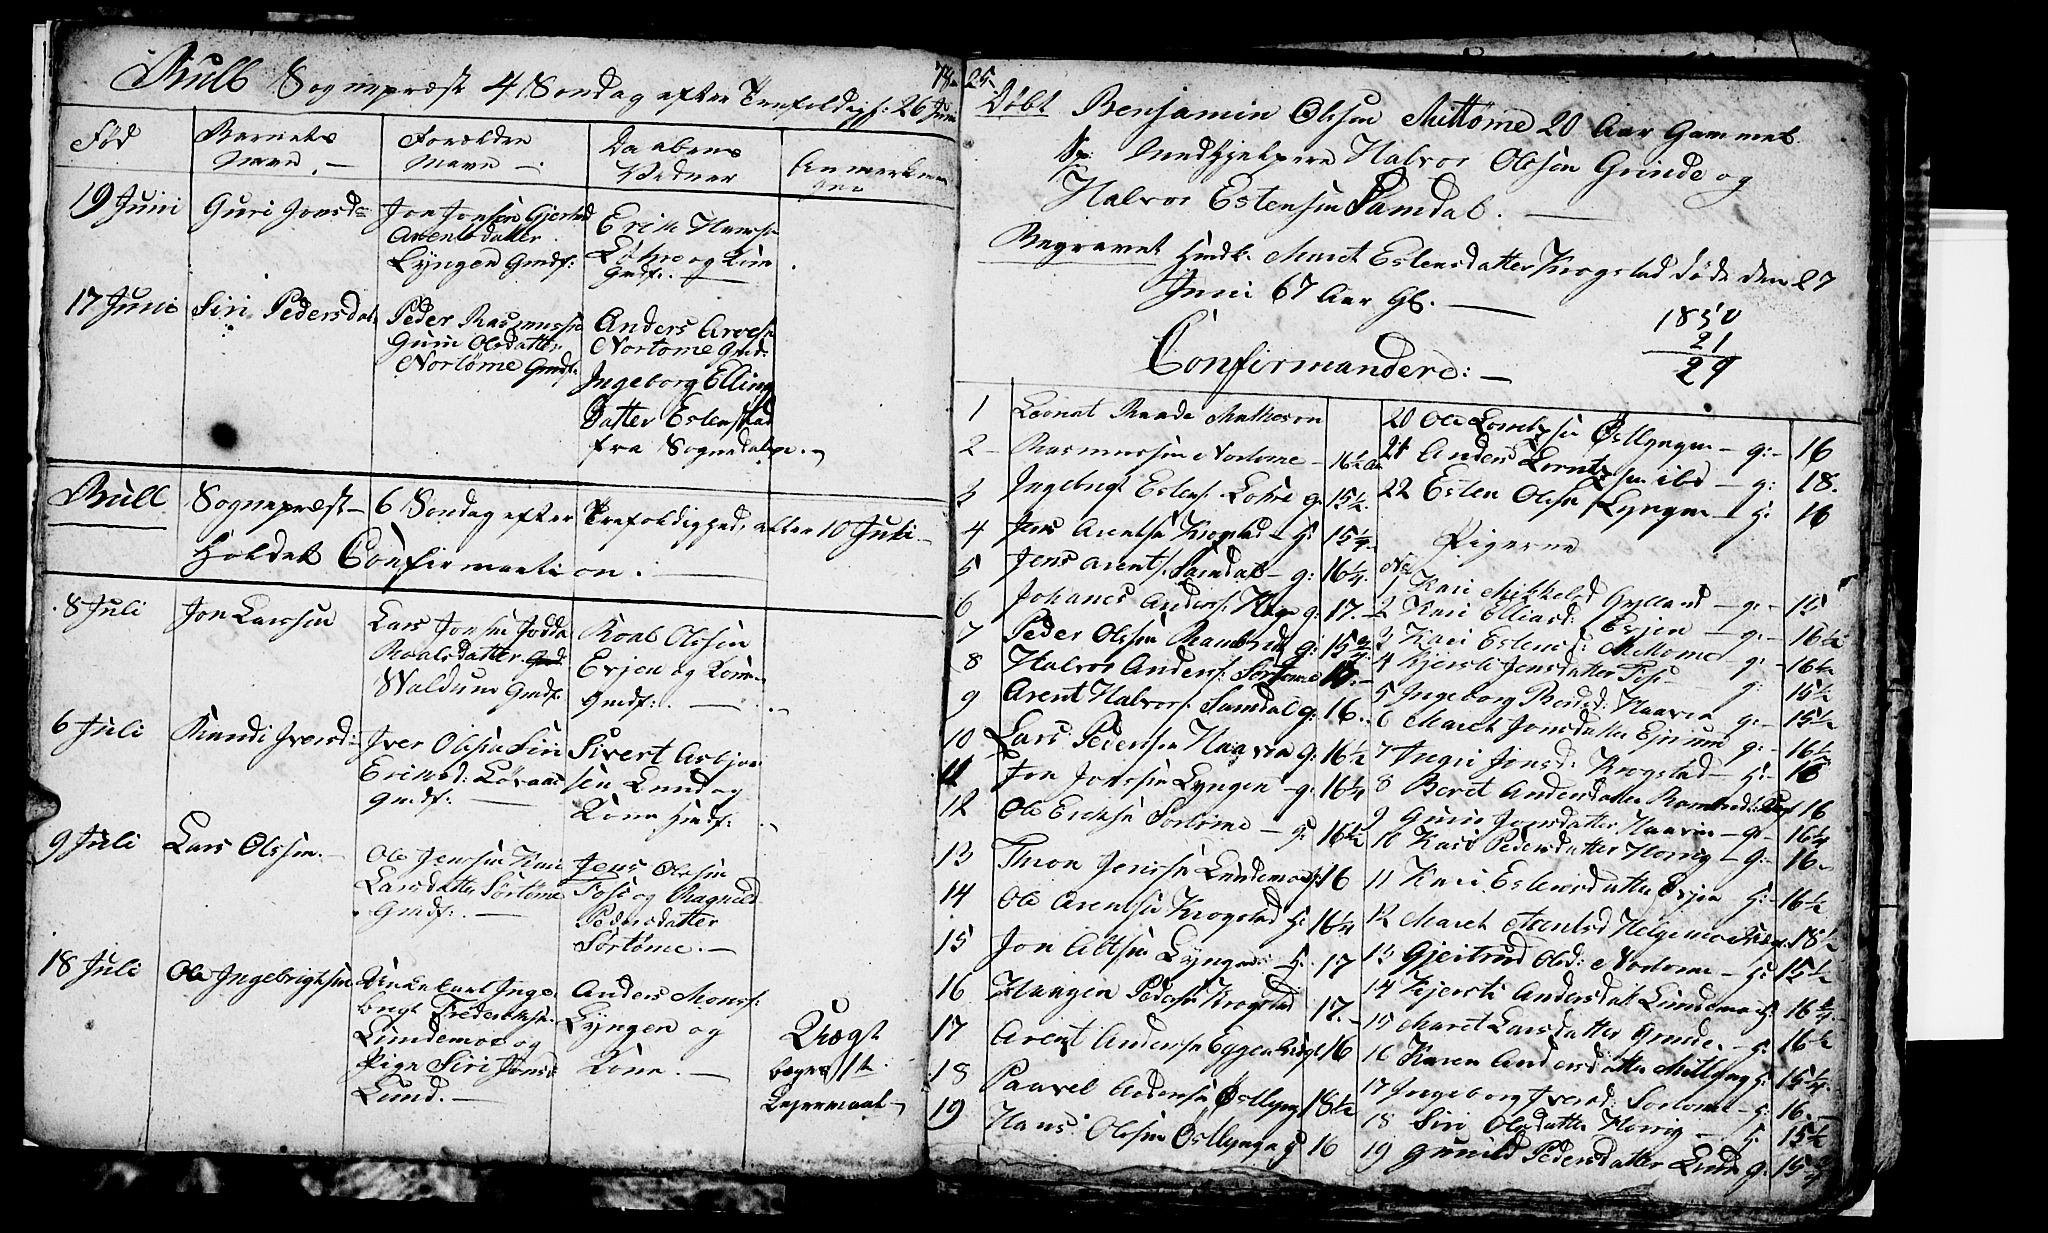 Bull Sognepræst 4 Søndag efter Trefoldigh: 26 Juni
Fød
Barnets Navn. —
Forældre Navn —
Daabens Vedner
Anmerkninger
19 Juni
Guri Jonsd
Jon Jonsen Gjersted
Arentsdatter
Lyngen Gmdf:
Erik Hansen
Løhre og Kone
Gmdf. —
17 Juni
Siri Pedersdat
Peder Rasmussen
Guru Olsdatter
Nortøme Gmdf.
Anders Arntsen
Nortome Gmd.
Ingeborg Elling
Datter Estenstad
fra Sognedalen. —
Bull Sognepræst — 6 Søndag efter Trefoldighed, eller 10 Juli —
Holdet Confirmation. —
8 Juli
Jon Larssen
Lars Jonsen Jodda
Roalsdatter
Waldum Gmdf.
Roal Olssen
Evjen og Kone
Gmdf: . —
6 Juli
Randi Iversd:
Iver Olssen Siri
Eriksd: Løvaas
Gmdf: —
Sivert Asbjørn
sen Lund og
Kone Hmdf:
9 Juli
Lars Olssen. —
Ole Jenssen Kari
Larsdatter Sørtøme
Gmdf: —
Jens Olssen
Fose og Ragnild
Pedersdatter
Sørtøme. —
18 Juli
Ole Ingebrigtsen
Enkekarl Inge
brigt Frederiksen
Lundemoe og
Pige Siri Jonsd
Lund. —
Anders Monss:
Lyngen og
Kone. —
Uægt
begges 1te
Leiermaal —
78 25
Døbt Benjamin Olssen Mittømе 20 Aar Gammel.
Sp: Medhjelpere Halvor Olssen Grinde og
Halvor Estensen Samdal. —
Begravet Hmdk. Maret Estensdatter Krogstad døde den 27
Juni 67 Aar Gl. —
1850
21
29
Confirmandere: —
1 Leonat Raade Matheson
2 — Rasmussen Nortome — 16½ Aar
3 Ingebrigt Estens: Lohre g: 15½.
4 Jens Arentsen Krogstad — H: 15¼
5 Jens Arents: Samdal — g: 16¼.
6 Johanes Anders: Hage g: 17. —
7 Peder Olssen Ramberg g: 15¾
8 Halvor Anders: Sørtome 18. —
9 Arent Halvors: Samdal g: 16.
10 Lars Pedersen Haaven g: 16½
11 Jon Jonssen Lyngen — g: 16¼
12 Ole Eriksen Sortøme — g: 16½
13 Thron Jenssen Lundemo 16
14 Ole Arentsen Krogstad H: 16¼
15 Jon Olssen Lyngen — H: 17
16 Haagen Peders: Krogstad 17. —
17 Arent Andersen Eggen 16
18 Paavel Andersen Østlyng 18½
19 Hans Olssen Østlynge g 16
20 Ole Lorntzsen Østlyngen — g: — 16
21 Anders Lorntzsen ibd — g: 18.
22 Esten Olssen Lyngen — H: 16
Pigerne
No
1 Kari Mikkelsd Gylland — g: — 15
2 Kari Elliasd: Evjen — g: — 16½
3 Kari Estensd: Mittomе — g: — 16½
4 Kjersti Jensdatter Fose — g: 15½
5 Ingeborg Haaven g: — 15½
6 Maret Jonsdatter g: — 16½
7 Ingri Jonsd: Krogstad — H: — 16
8 Beret Andersdatter 16
9 Guru Jonsdatter Haaven — g — 16¼
10 Kari Pedersdatter Horrig — g: 16
11 Kari Estensdatter Evjen H: — 16½
12 Maret Arentsd Helgemo 18½
13 Gjertrud Olsd: Nortome — H: 15½
14 Kjersti Andersdat Lundemo H: 16¾
15 Maret Larsdatter Grinde. — g: 16½
16 Karen Andersdatter Mitlyng H: 15¼
17 Ingeborg Iversd: Sortome — H: 16. —
18 Siri Olsdatter Horrig — H: 15½
19 Gunild Pedersdatter Lund g: 15¾